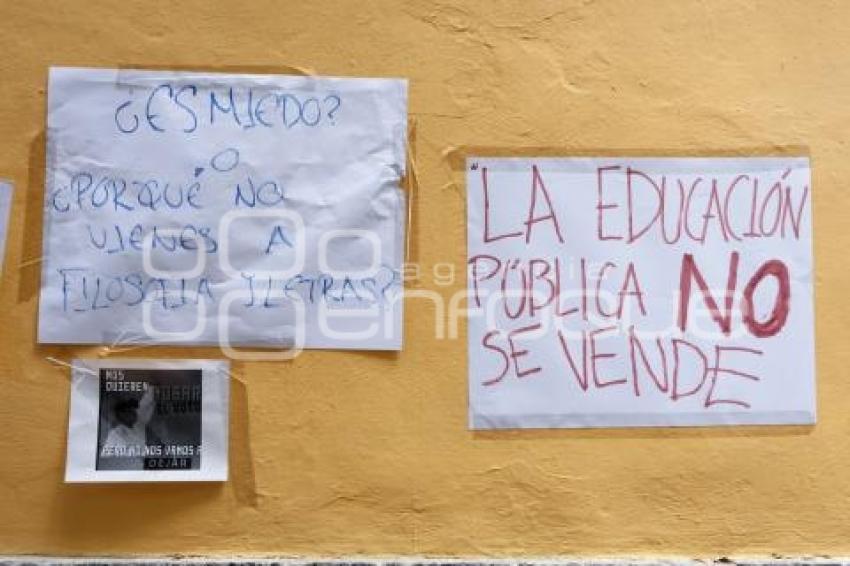 ¿ES MIEDO?
O
¿PORQUÉ NO
VIENES A
FILOSOFIA Y LETRAS?
"LA EDUCACIÓN
PÚBLICA NO
SE VENDE
NOS
QUIEREN ROBAR
EL VOTO
PERO NO NOS VAMOS A
DEJAR
agencia
enfoque